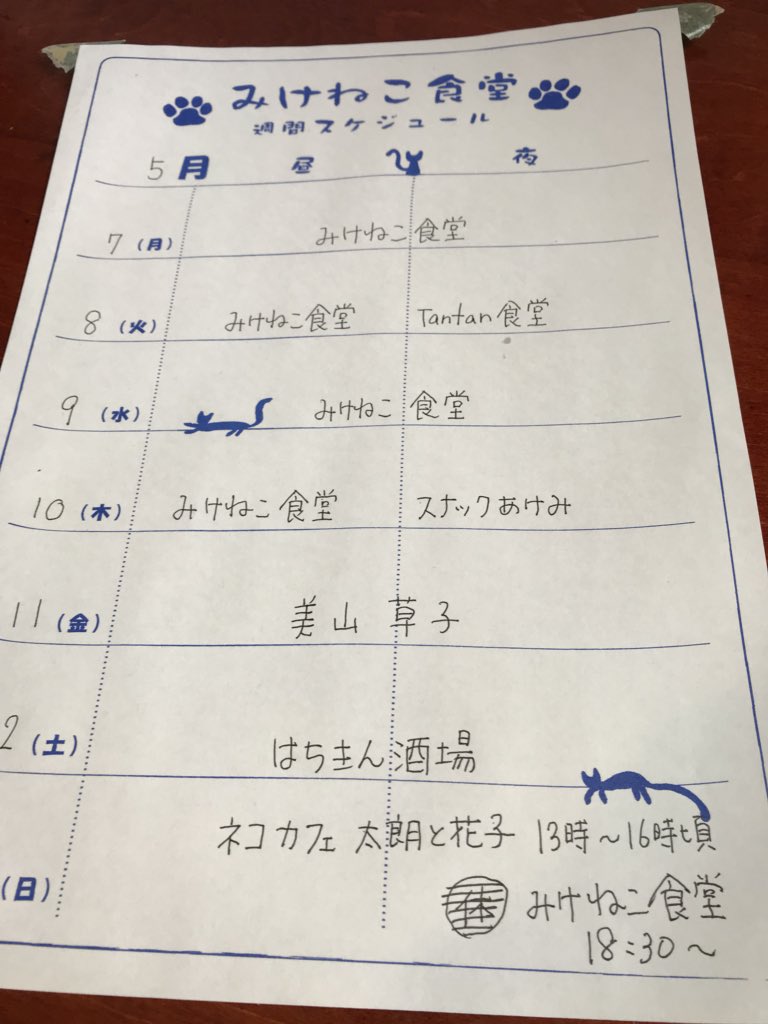 みけねこ食堂
週間スケジュール
5月 昼 夜
7(月) みけねこ食堂
8(火) みけねこ食堂 Tantan食堂
9(水) みけねこ食堂
10(木) みけねこ食堂 スナックあけみ
11(金) 美山草子
2(土) はちきん酒場
(日) ネコカフェ 太朗と花子 13時～16時頃
みけねこ食堂
18:30～